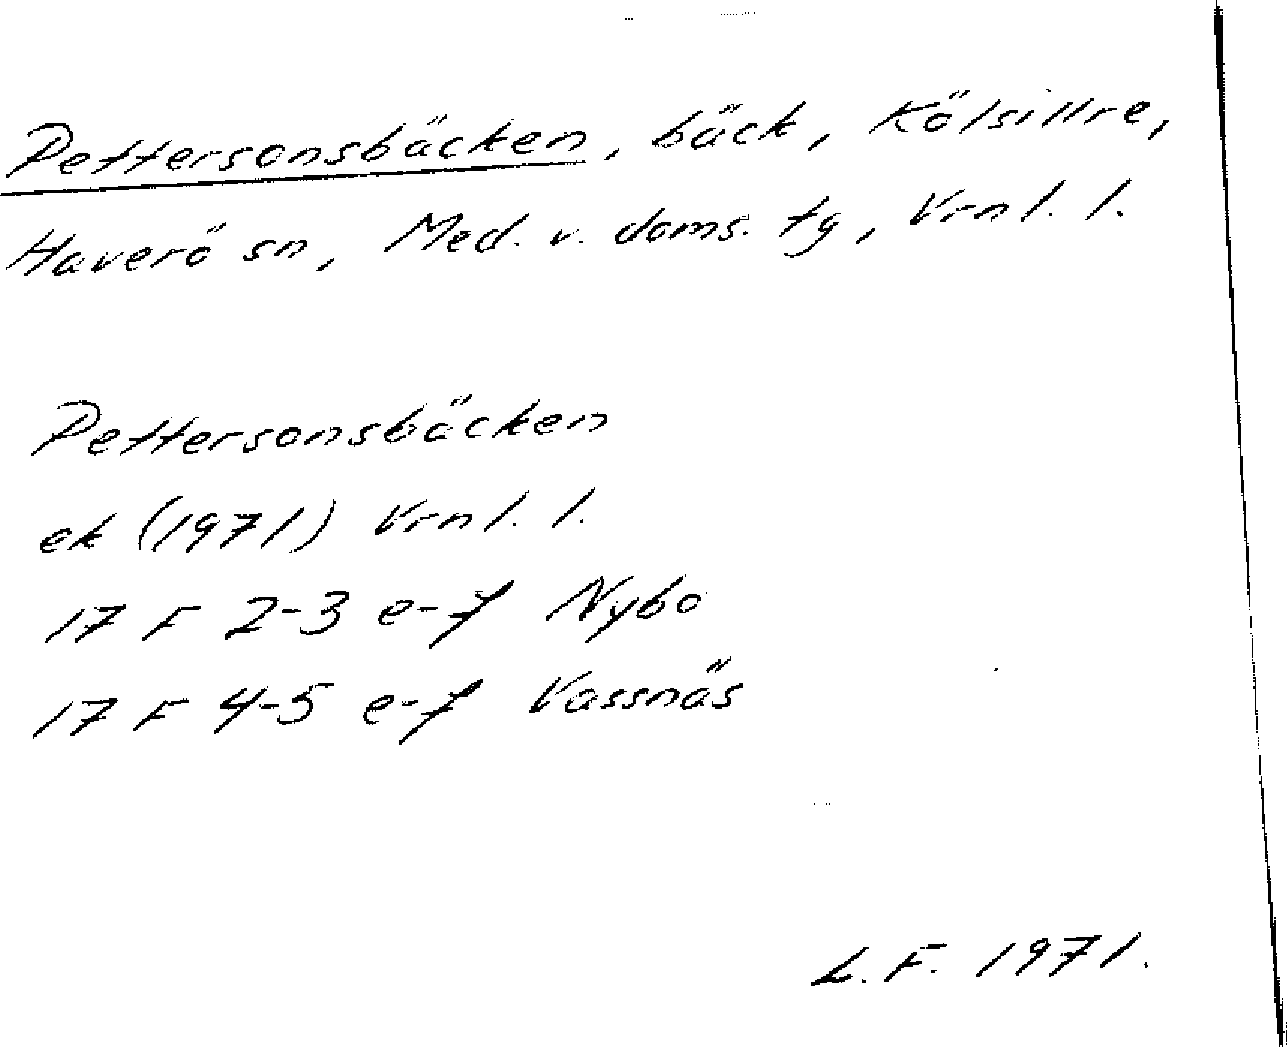 Pettersonsbäcken, bäck, Kölsillre,
Haverö sn, Med. v. doms. tg, Vrnl. l.
Pettersonsbäcken
ek (1971) Vrnl. l.
17 F 2-3 e-f Nybo
17 F 4-5 e-f Vassnäs
L. F. 1971.